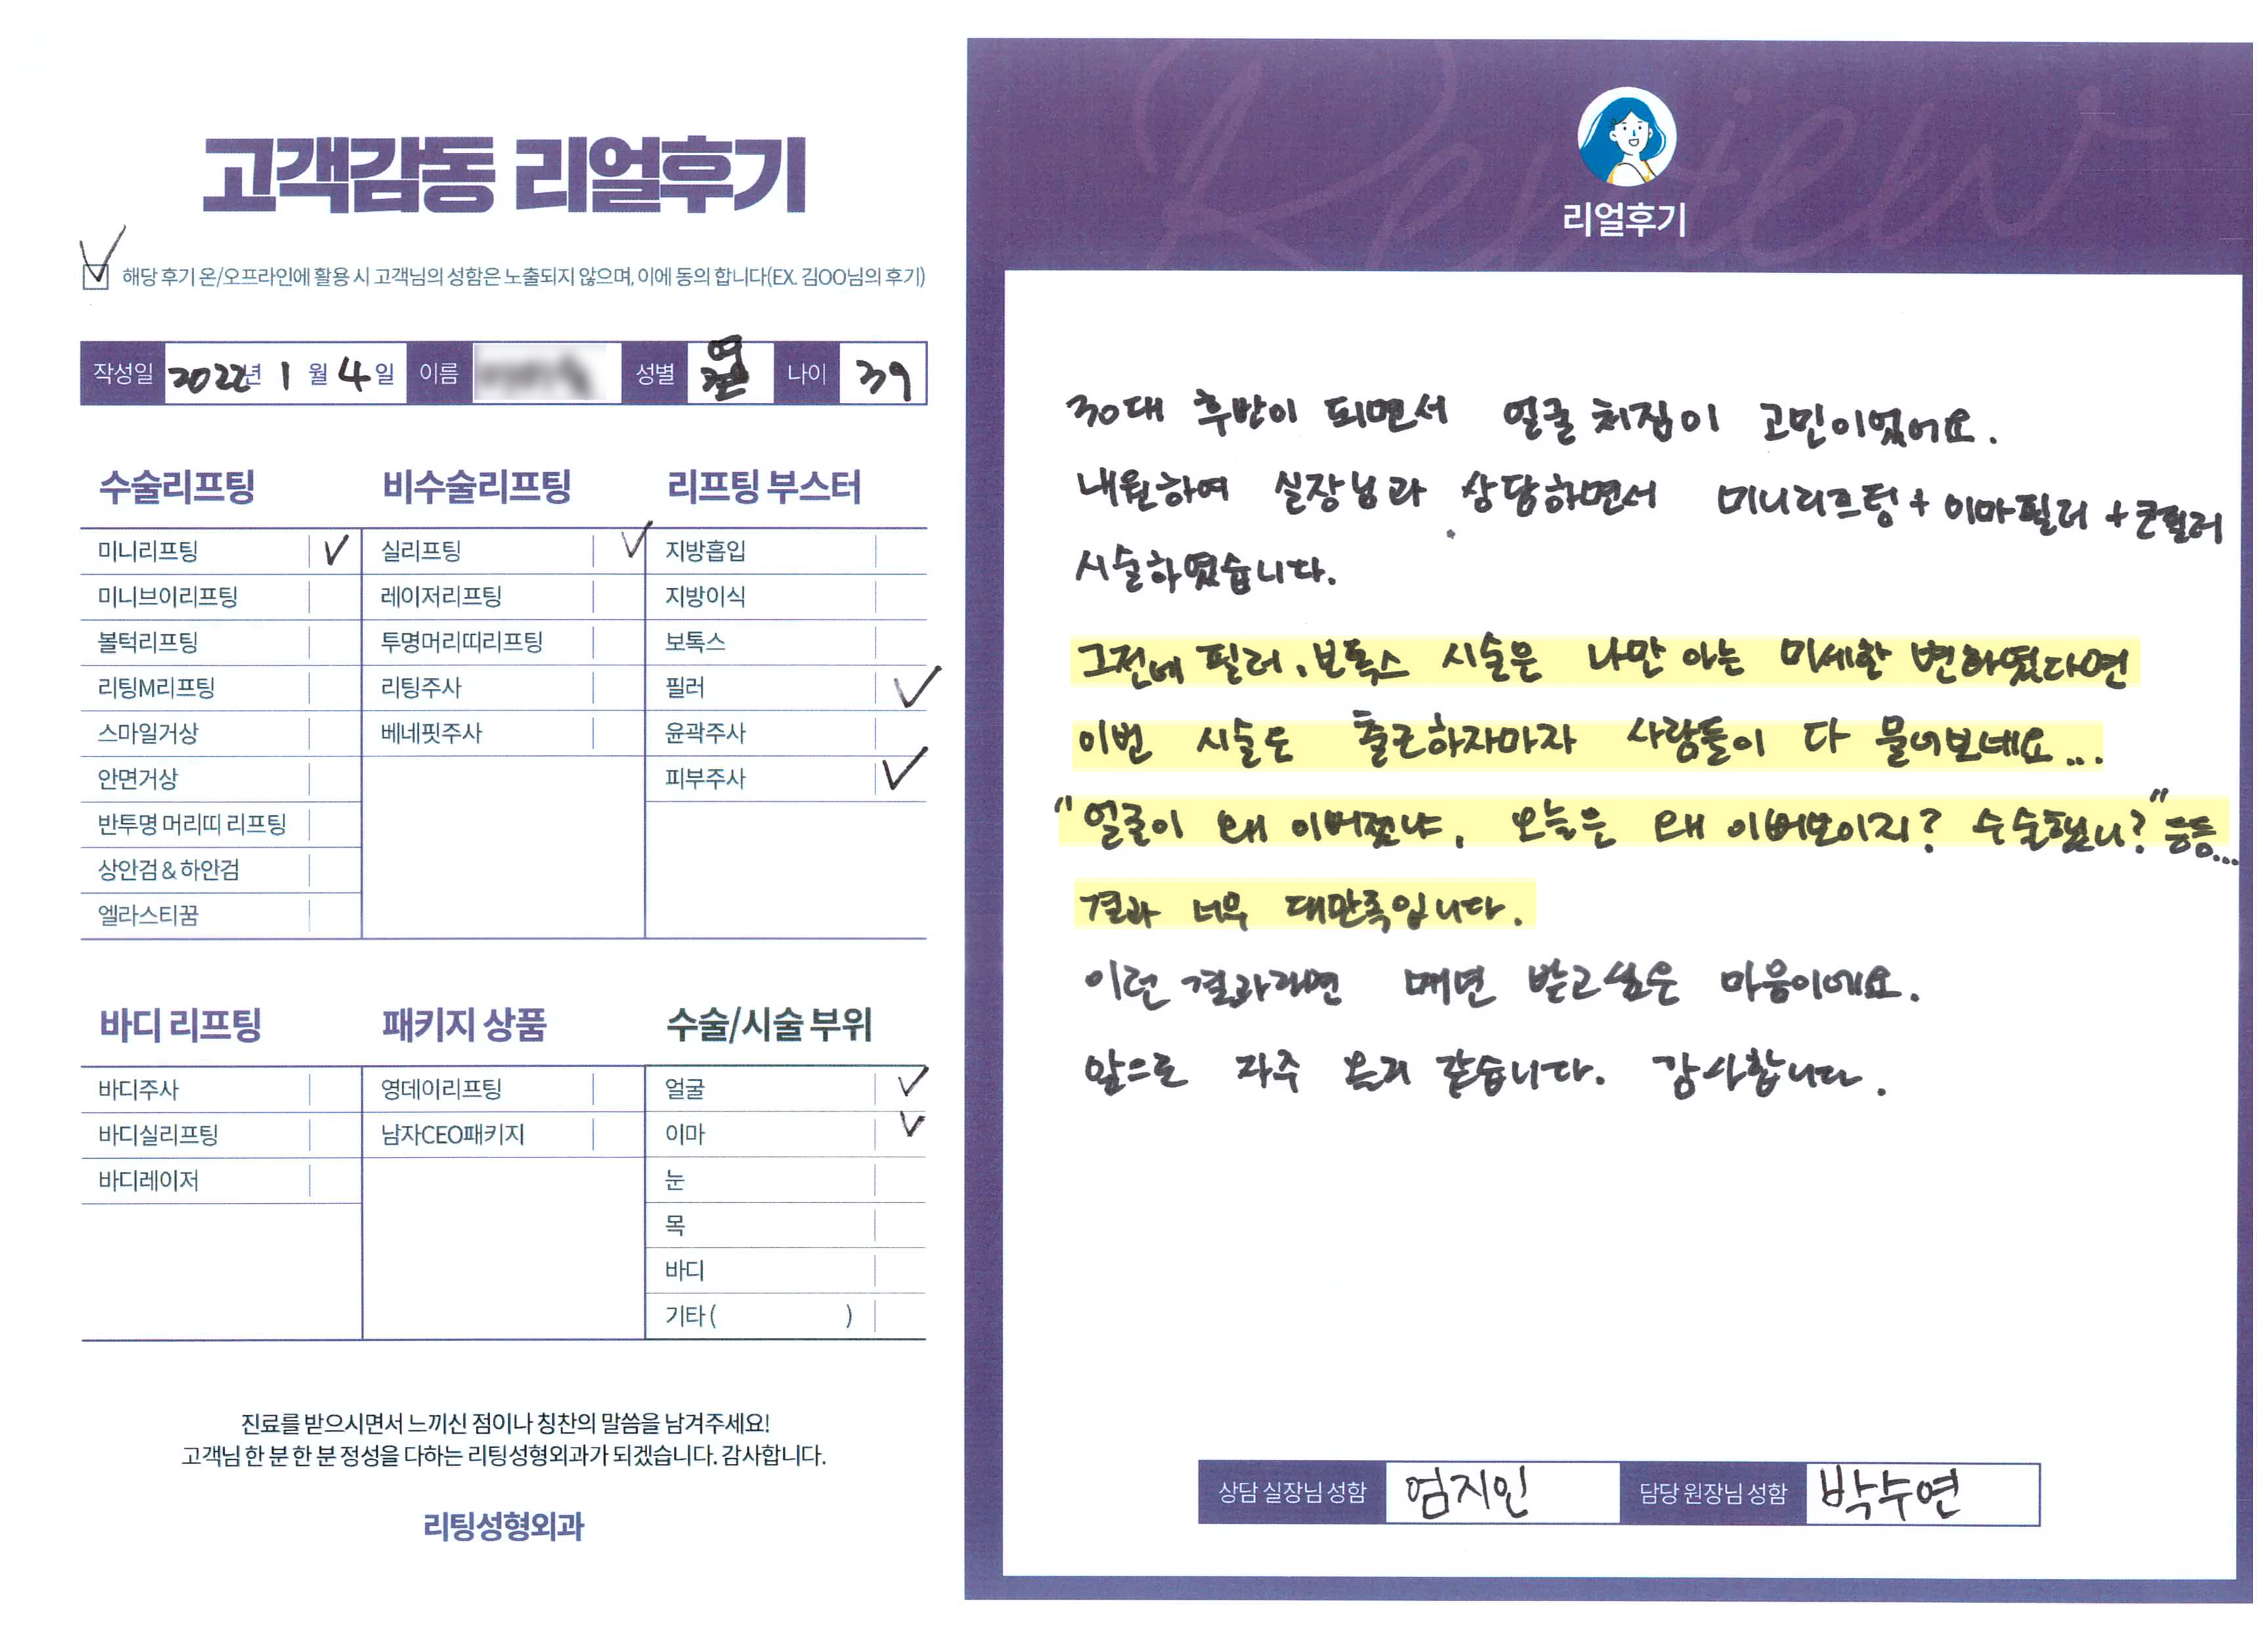 고객감동 리얼후기
해당 후기 온/오프라인에 활용 시 고객님의 성함은 노출되지 않으며, 이에 동의 합니다(EX. 김OO님의 후기)
작성일 2022년 1월 4일 이름 성별 여 나이 39
수술리프팅
미니리프팅
미니브이리프팅
볼턱리프팅
리팅M리프팅
스마일거상
안면거상
반투명 머리띠 리프팅
상안검 & 하안검
엘라스티꿈
비수술리프팅
실리프팅
레이저리프팅
투명머리띠리프팅
리팅주사
베네핏주사
리프팅 부스터
지방흡입
지방이식
보톡스
필러
윤곽주사
피부주사
바디 리프팅
바디주사
바디실리프팅
바디레이저
패키지 상품
영데이리프팅
남자CEO패키지
수술/시술 부위
얼굴
이마
눈
목
바디
기타 ( )
진료를 받으시면서 느끼신 점이나 칭찬의 말씀을 남겨주세요!
고객님 한 분 한 분 정성을 다하는 리팅성형외과가 되겠습니다. 감사합니다.
리팅성형외과
Review
리얼후기
30대 후반이 되면서 얼굴 처짐이 고민이었어요.
내원하여 실장님과 상담하면서 미니리프팅 + 이마필러 + 코필러
시술하였습니다.
그전에 필러, 보톡스 시술은 나만 아는 미세한 변하였다면
이번 시술은 출근하자마자 사람들이 다 물어보네요...
"얼굴이 왜 이뻐졌냐, 오늘은 왜 이뻐보이지? 수술했니?" 등등...
결과 너무 대만족입니다.
이런 결과라면 매년 받고싶은 마음이에요.
앞으로 자주 올거 같습니다. 감사합니다.
상담 실장님 성함 엄지인 담당 원장님 성함 박수연